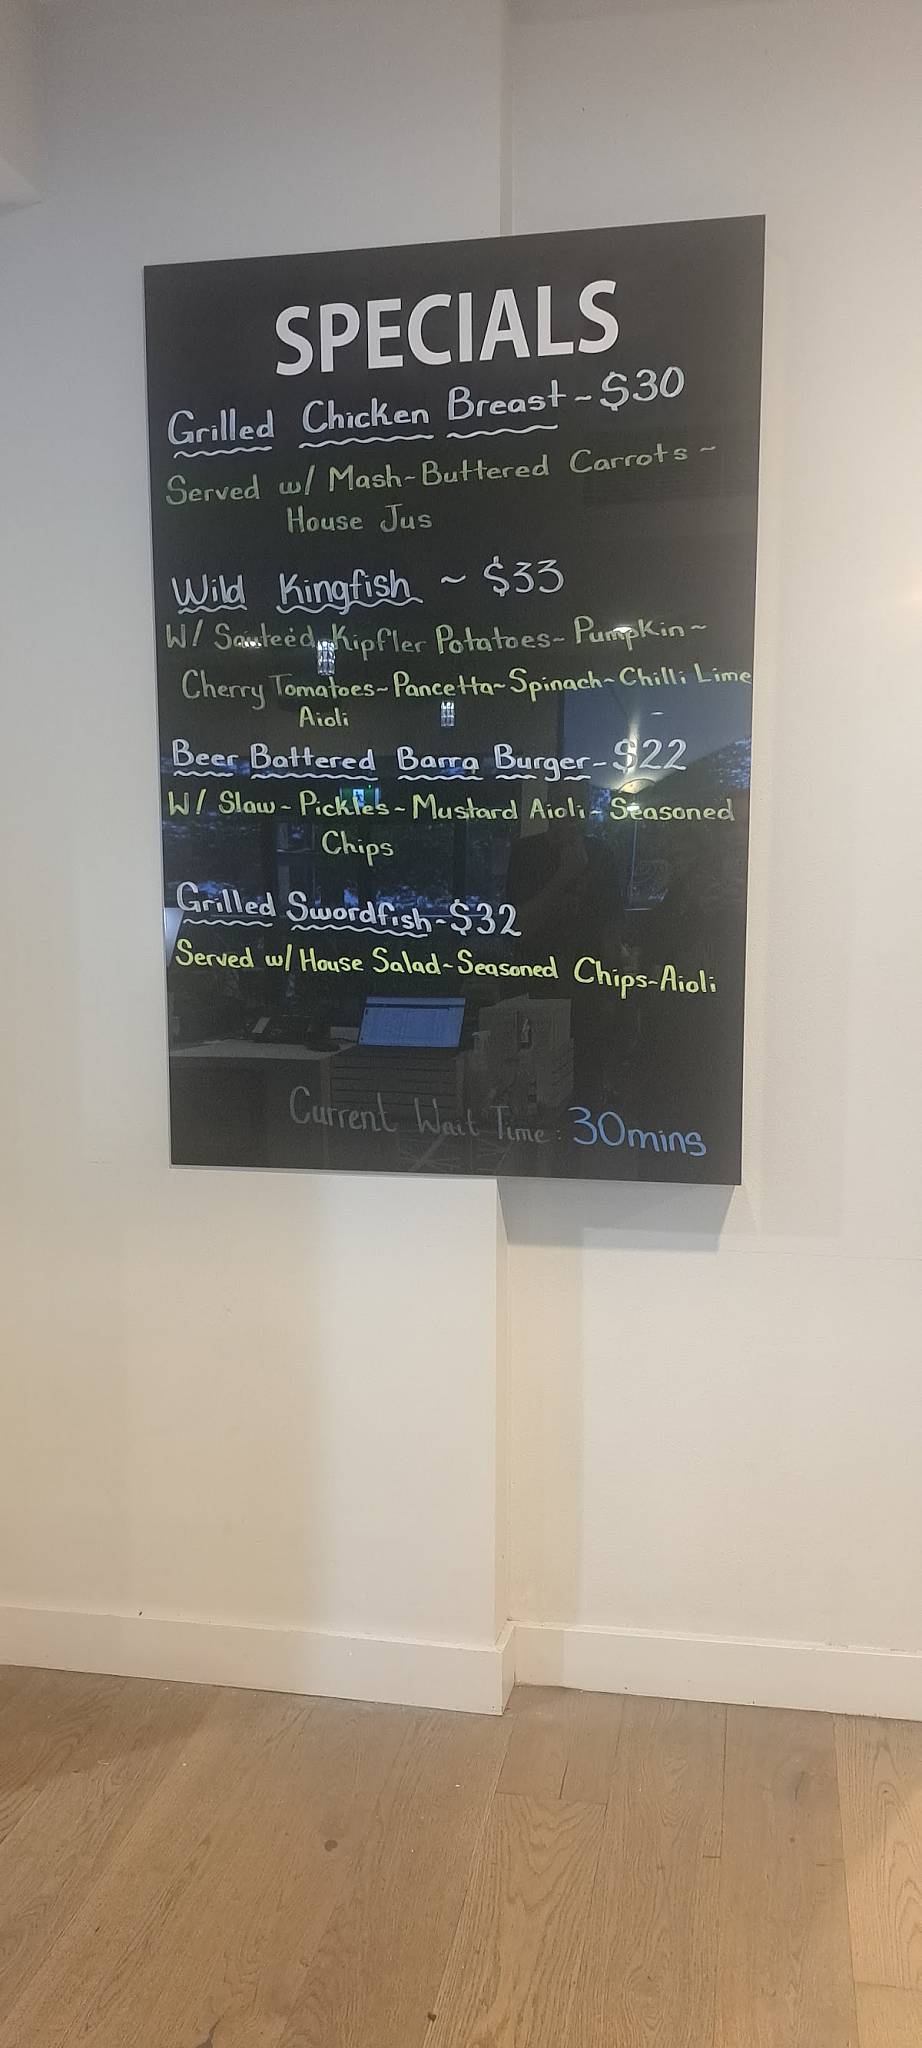 SPECIALS
Grilled Chicken Breast ~ $30
Served w/ Mash ~ Buttered Carrots ~
House Jus
Wild Kingfish ~ $33
W/ Sauteéd Kipfler Potatoes ~ Pumpkin ~
Cherry Tomatoes ~ Pancetta ~ Spinach ~ Chilli Lime
Aioli
Beer Battered Barra Burger ~ $22
W/ Slaw ~ Pickles ~ Mustard Aioli ~ Seasoned
Chips
Grilled Swordfish ~ $32
Served w/ House Salad ~ Seasoned Chips ~ Aioli
Current Wait Time: 30mins